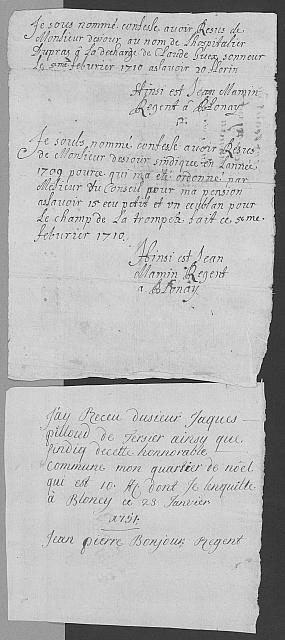 Je sous nommé confesse avoir Resus de
Monsieur dejoux au nom de Lhospitallier
Dupras à La decharge de Claude Guex sonneur
Le 5me febvrier 1710 asavoir 20 florin
Ainsi est Jean Mamin
Regent à Blonay
Je souls nommé confesse avoir Resus
de Monsieur desjoux sindique en Lannée
1709 pource qui ma été ordonné par
Messieur du Conseil pour ma pension
aslavoir 15 ecu petit et un ecu blan pour
Le champ de La trompete fait ce 5eme
febvrier 1710
Ainsi est Jean
Mamin Regent
a Blonay
J'ay Receu dusieur Jaques
pilloud de Tersier ainsy que
sindiq decette honnorable
commune mon quartier de noël
qui est 10 dont Je lenquitte
à Bloney ce 23 Janvier
1751
Jean pierre Bonjour Regent